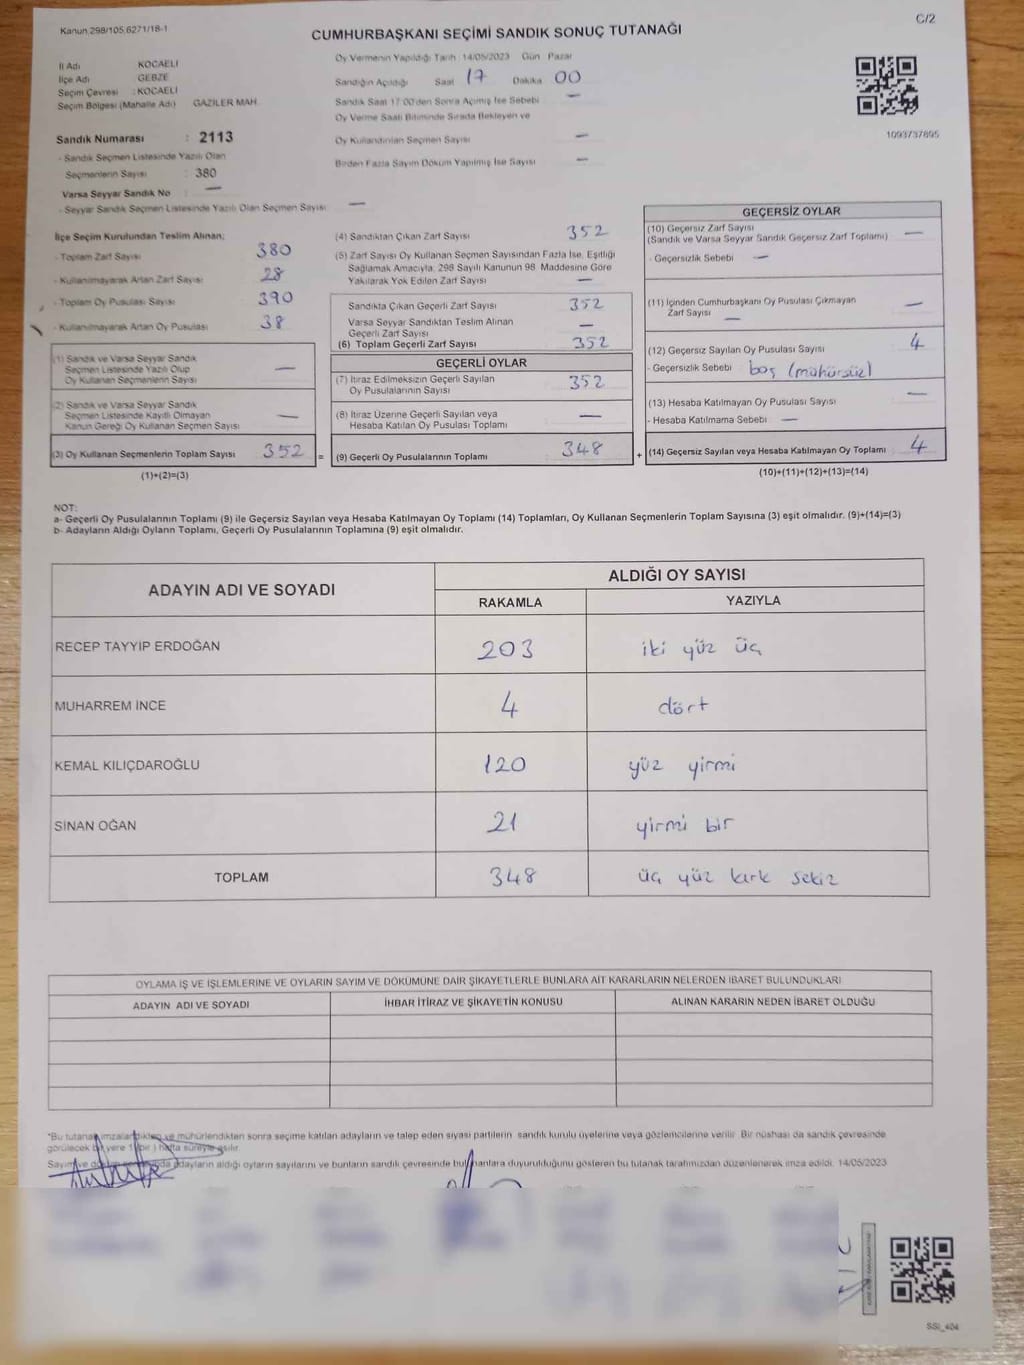 Kanun 298/105,6271/18-1
C/2
CUMHURBAŞKANI SEÇİMİ SANDIK SONUÇ TUTANAĞI
İl Adı KOCAELİ
İlçe Adı GEBZE
Seçim Çevresi : KOCAELİ
Seçim Bölgesi (Mahalle Adı) GAZİLER MAH.
Oy Vermenin Yapıldığı Tarih : 14/05/2023 Gün Pazar
Sandığın Açıldığı Saat 17 Dakika 00
Sandık Saat 17:00'den Sonra Açılmış İse Sebebi —
Oy Verme Saati Bitiminde Sırada Bekleyen ve
Oy Kullandırılan Seçmen Sayısı —
Birden Fazla Sayım Döküm Yapılmış İse Sayısı —
1093737895
Sandık Numarası : 2113
- Sandık Seçmen Listesinde Yazılı Olan
Seçmenlerin Sayısı : 380
Varsa Seyyar Sandık No : —
- Seyyar Sandık Seçmen Listesinde Yazılı Olan Seçmen Sayısı —
İlçe Seçim Kurulundan Teslim Alınan;
- Toplam Zarf Sayısı 380
- Kullanılmayarak Artan Zarf Sayısı 28
- Toplam Oy Pusulası Sayısı 390
- Kullanılmayarak Artan Oy Pusulası 38
(1) Sandık ve Varsa Seyyar Sandık
Seçmen Listesinde Yazılı Olup
Oy Kullanan Seçmenlerin Sayısı —
(2) Sandık ve Varsa Seyyar Sandık
Seçmen Listesinde Kayıtlı Olmayan
Kanun Gereği Oy Kullanan Seçmen Sayısı —
(3) Oy Kullanan Seçmenlerin Toplam Sayısı 352
(1)+(2)=(3)
=
(4) Sandıktan Çıkan Zarf Sayısı 352
(5) Zarf Sayısı Oy Kullanan Seçmen Sayısından Fazla İse, Eşitliği
Sağlamak Amacıyla, 298 Sayılı Kanunun 98. Maddesine Göre
Yakılarak Yok Edilen Zarf Sayısı —
Sandıkta Çıkan Geçerli Zarf Sayısı 352
Varsa Seyyar Sandıktan Teslim Alınan
Geçerli Zarf Sayısı —
(6) Toplam Geçerli Zarf Sayısı 352
GEÇERLİ OYLAR
(7) İtiraz Edilmeksizin Geçerli Sayılan
Oy Pusulalarının Sayısı 352
(8) İtiraz Üzerine Geçerli Sayılan veya
Hesaba Katılan Oy Pusulası Toplamı —
(9) Geçerli Oy Pusulalarının Toplamı 348
+
GEÇERSİZ OYLAR
(10) Geçersiz Zarf Sayısı
(Sandık ve Varsa Seyyar Sandık Geçersiz Zarf Toplamı) —
- Geçersizlik Sebebi —
(11) İçinden Cumhurbaşkanı Oy Pusulası Çıkmayan
Zarf Sayısı —
(12) Geçersiz Sayılan Oy Pusulası Sayısı 4
- Geçersizlik Sebebi boş (mühürsüz)
(13) Hesaba Katılmayan Oy Pusulası Sayısı —
- Hesaba Katılmama Sebebi —
(14) Geçersiz Sayılan veya Hesaba Katılmayan Oy Toplamı 4
(10)+(11)+(12)+(13)=(14)
NOT:
a- Geçerli Oy Pusulalarının Toplamı (9) ile Geçersiz Sayılan veya Hesaba Katılmayan Oy Toplamı (14) Toplamları, Oy Kullanan Seçmenlerin Toplam Sayısına (3) eşit olmalıdır. (9)+(14)=(3)
b- Adayların Aldığı Oyların Toplamı, Geçerli Oy Pusulalarının Toplamına (9) eşit olmalıdır.
ADAYIN ADI VE SOYADI
ALDIĞI OY SAYISI
RAKAMLA YAZIYLA
RECEP TAYYİP ERDOĞAN 203 iki yüz üç
MUHARREM İNCE 4 dört
KEMAL KILIÇDAROĞLU 120 yüz yirmi
SİNAN OĞAN 21 yirmi bir
TOPLAM 348 üç yüz kırk sekiz
OYLAMA İŞ VE İŞLEMLERİNE VE OYLARIN SAYIM VE DÖKÜMÜNE DAİR ŞİKAYETLERLE BUNLARA AİT KARARLARIN NELERDEN İBARET BULUNDUKLARI
ADAYIN ADI VE SOYADI İHBAR İTİRAZ VE ŞİKAYETİN KONUSU ALINAN KARARIN NEDEN İBARET OLDUĞU
*Bu tutanak imzalandıktan ve mühürlendikten sonra seçime katılan adayların ve talep eden siyasi partilerin sandık kurulu üyelerine veya gözlemcilerine verilir. Bir nüshası da sandık çevresinde
görülecek bir yere 1 (bir ) hafta süreyle asılır.
Sayım ve döküm sonunda adayların aldığı oyların sayılarını ve bunların sandık çevresinde bulunanlara duyurulduğunu gösteren bu tutanak tarafımızdan düzenlenerek imza edildi. 14/05/2023
SSİ_404